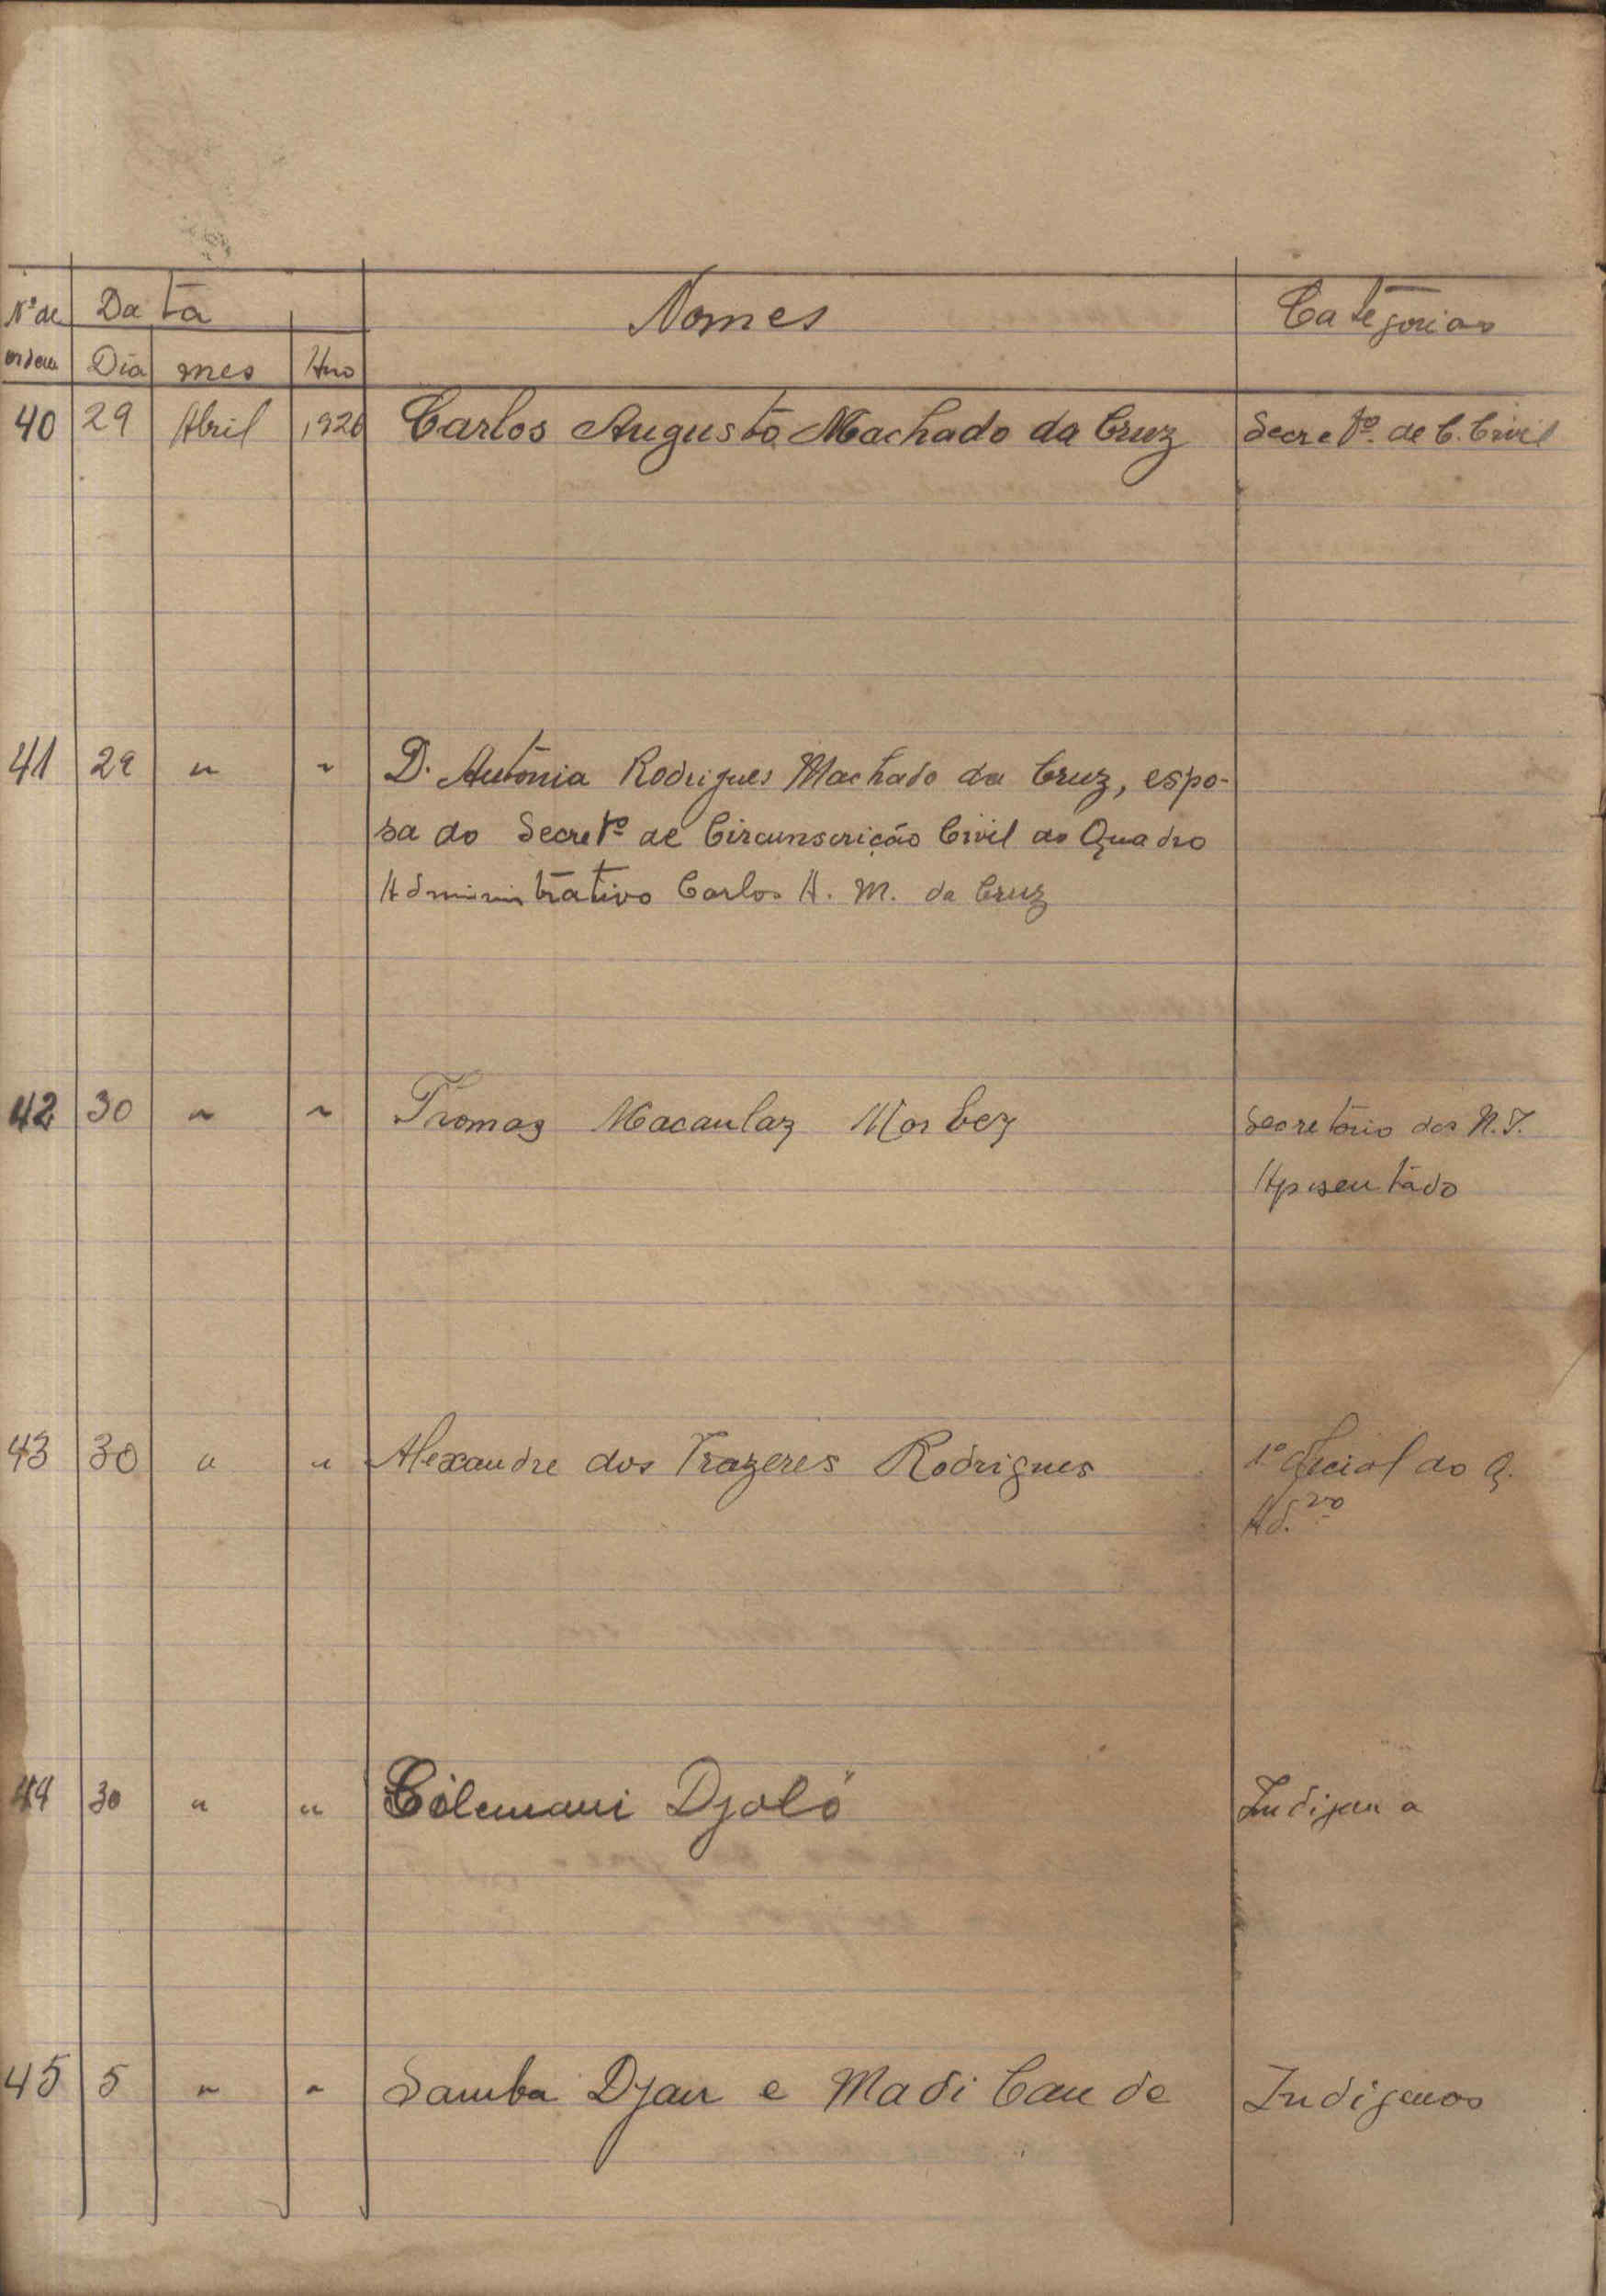 Nº de Data Nomes Categorias
ordem Dia mes Ano
40 29 Abril 1926 Carlos Augusto Machado da Cruz Secretº. de C. Civil
41 29 " " D. Antónia Rodrigues Machado da Cruz, espo-
sa do Secretº de Circunscrição Civil do Quadro
Administrativo Carlos A. M. da Cruz
42 30 " " Thomaz Macaulay Secretário dos N. I.
Aposentado
43 30 " " Alexandre dos Prazeres Rodrigues 1º Oficial do Q.
Ad.vo
44 30 " " Djaló Indigena
45 5 " " Samba Djau e Madi Cande Indigenas